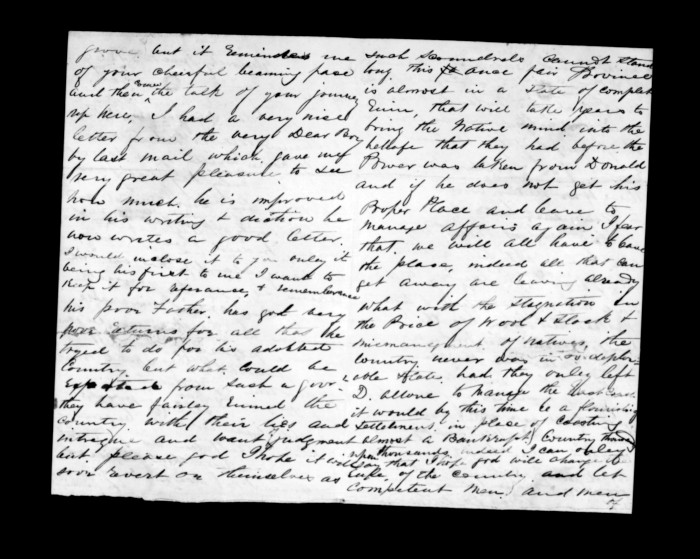 grove but it Reminds me
of your cheerful beaming face
and then the talk of your journey
up here, I had a very nice
letter from the very Dear Boy
by last mail which gave me
very great pleasure to see
how much he is improved
in his writing & diction he
now writes a good letter.
I would inclose it to you only it
being his first to me I want to
keep it for referance, & rememberence
his poor Father, has got very
poor returns for all that he
tryed to do for his adobted
Country but what could be
Expected from such a gover
they have fairley Ruined the
country with their lies and
intrague and want of Judgment
but please god I hope it will
soon revert on themselves as
such scoundrels cannot stand
long this once fair Province
is alomst in a state of complet
Ruin, that will take years to
bring the Native mind into the
that they had before the
Power was taken from Donald
and if he does not get his
Proper Place and leave to
manage affairs again I fear
that we will all have to leave
the place, indeed all that can
get away are leaving already
what with the Stagnation in
the Price of Wool & Stock &
mismanagment of natives, the
Country never was in so deplor-
able state. had they onley left
D. allone to manage the East coast
it would by this time be a flourishing
Settlement in place of costing
almost a Bankrupt Country thousands
upon thousands indeed I can onley
say that I hope god will change the
rule, of the country and let
Competent men, and men
of